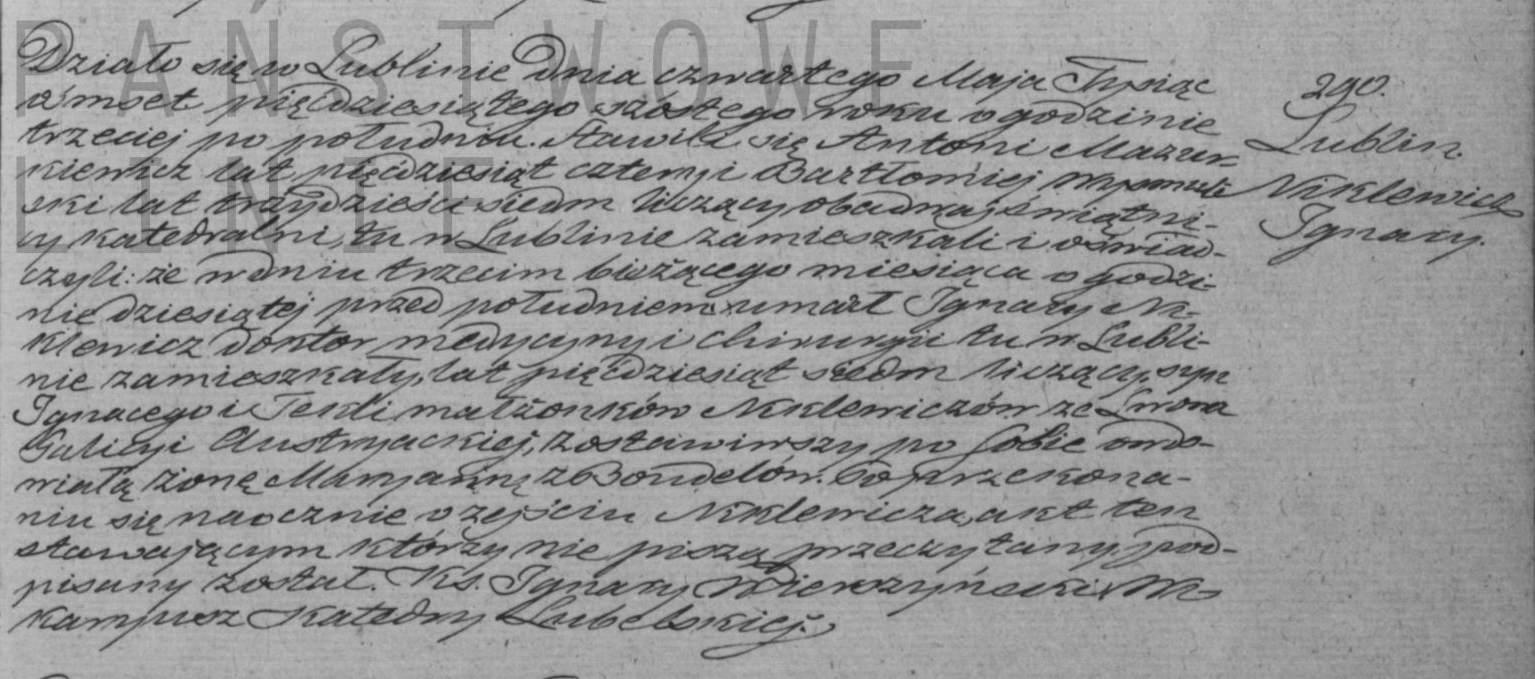 290.
Lublin.
Niklewicz
Ignacy.
Działo się w Lublinie Dnia czwartego Maja Tysiąc
ośmset pięćdziesiątego szóstego roku o godzinie
trzeciej po południu. Stawili się Antoni Mazur-
kiewicz lat pięćdziesiąt cztery i Bartłomiej
ski lat trzydzieści siedm liczący obadwaj świątni-
cy katedralni, tu w Lublinie zamieszkali i oświad-
czyli: że w dniu trzecim bieżącego miesiąca o godzi-
nie dziesiątej przed południem umarł Ignacy Ni-
klewicz Doktor medycyny i chirurgii tu w Lubli-
nie zamieszkały, lat pięćdziesiąt siedm liczący, syn
Ignacego i Tekli małżonków Niklewiczów ze Lwowa
Galicyi Austryackiej, zostawiwszy po sobie owdo-
wiałą żonę Maryannę z Bondelów. Po przekona-
niu się naocznie o zejściu Niklewicza, akt ten
stawającym którzy nie piszą przeczytany, pod-
pisany został. Ks. Ignacy Wierszyński Wi-
karyusz Katedry Lubelskiej.
PAŃSTWOWE